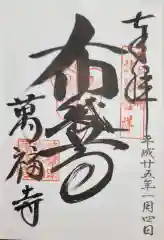 奉拝
平成廿五年一月四日
布袋尊
萬福寺